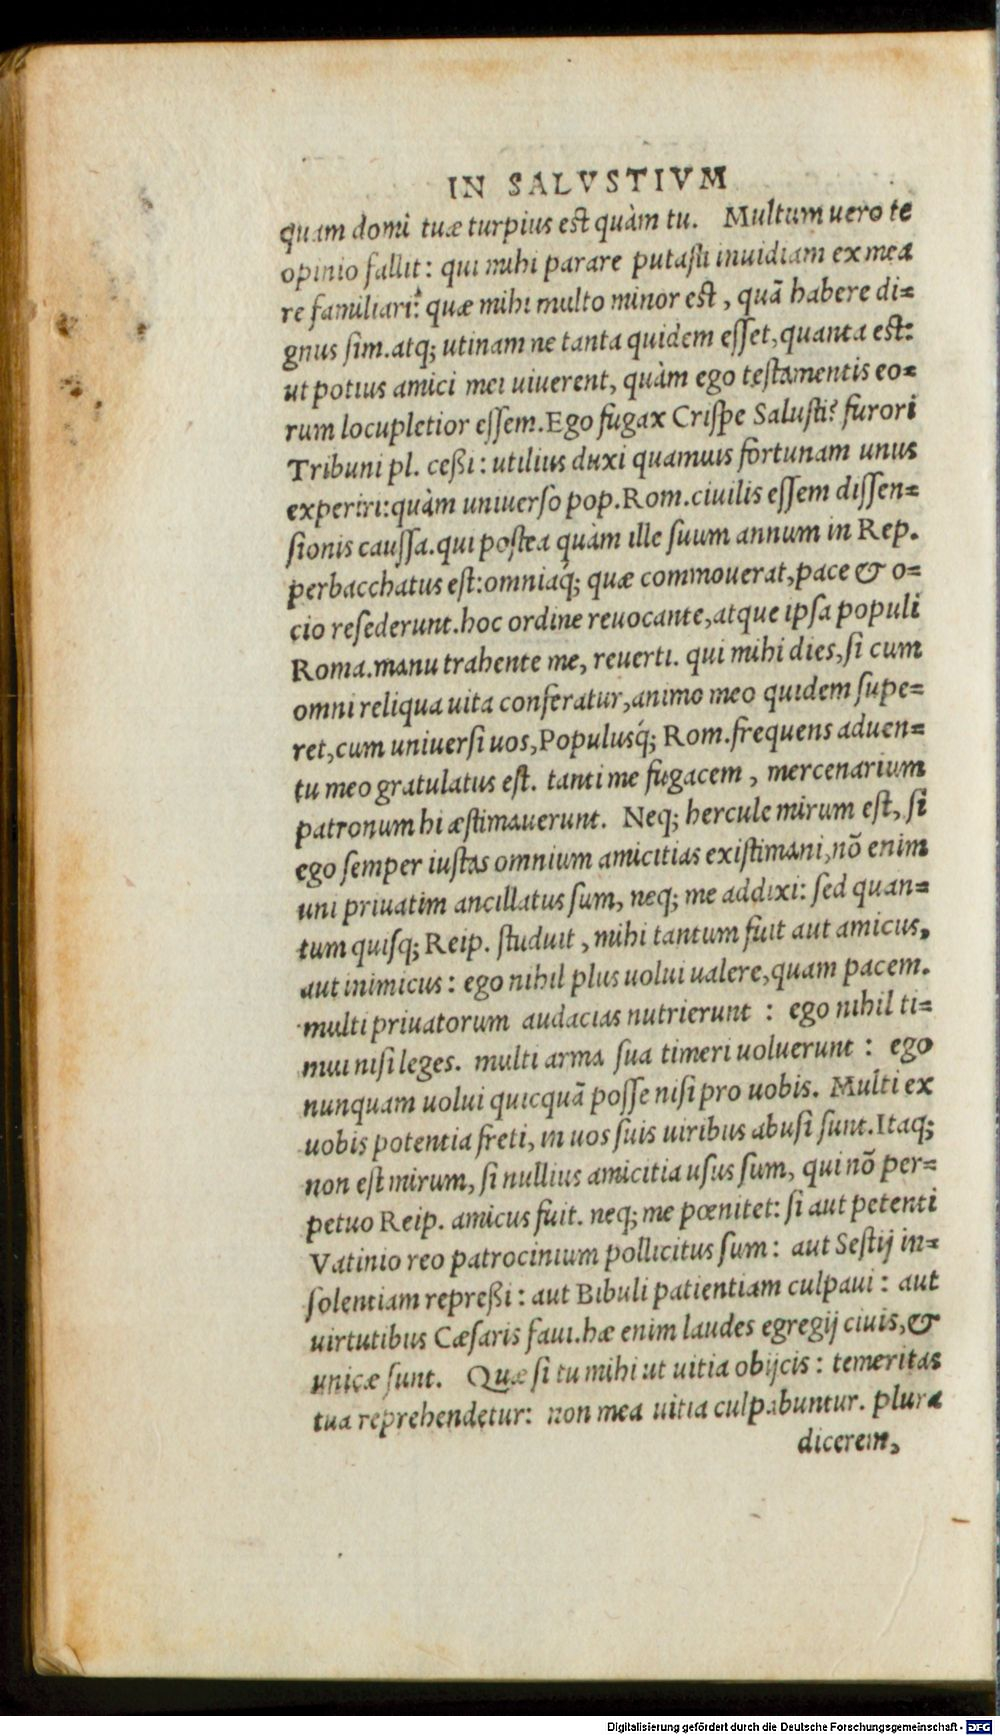 IN SALVSTIVM
quam domi tuæ turpius est quàm tu. Multum uero te
opinio fallit: qui mihi parare putasti inuidiam ex mea
re familiari: quæ mihi multo minor est, quā habere di=
gnus sim. atq; utinam ne tanta quidem esset, quanta est:
ut potius amici mei uiuerent, quàm ego testamentis eo=
rum locupletior essem. Ego fugax Crispe Salusti? furori
Tribuni pl. ceßi: utilius duxi quamuis fortunam unus
experiri: quàm uniuerso pop. Rom. ciuilis essem dissen=
sionis caussa. qui postea quàm ille suum annum in Rep.
perbacchatus est: omniaq́; quæ commouerat, pace & o=
cio resederunt. hoc ordine reuocante, atque ipsa populi
Roma. manu trahente me, reuerti. qui mihi dies, si cum
omni reliqua uita conferatur, animo meo quidem supe=
ret, cum uniuersi uos, Populusq́; Rom. frequens aduen=
tu meo gratulatus est. tanti me fugacem, mercenarium
patronum hi æstimauerunt. Neq; hercule mirum est, si
ego semper iustas omnium amicitias existimani, nō enim
uni priuatim ancillatus sum, neq; me addixi: sed quan=
tum quisq; Reip. studuit, mihi tantum fuit aut amicus,
aut inimicus: ego nihil plus uolui ualere, quam pacem.
multi priuatorum audacias nutrierunt : ego nihil ti=
mui nisi leges. multi arma sua timeri uoluerunt : ego
nunquam uolui quicquā posse nisi pro uobis. Multi ex
uobis potentia freti, in uos suis uiribus abusi sunt. Itaq;
non est mirum, si nullius amicitia usus sum, qui nō per=
petuo Reip. amicus fuit. neq; me pœnitet: si aut petenti
Vatinio reo patrocinium pollicitus sum: aut Sestij in=
solentiam repreßi: aut Bibuli patientiam culpaui: aut
uirtutibus Cæsaris faui. hæ enim laudes egregij ciuis, &
unicæ sunt. Quæ si tu mihi ut uitia obijcis: temeritas
tua reprehendetur: non mea uitia culpabuntur. plura
dicerem,
Digitalisierung gefördert durch die Deutsche Forschungsgemeinschaft - DFG